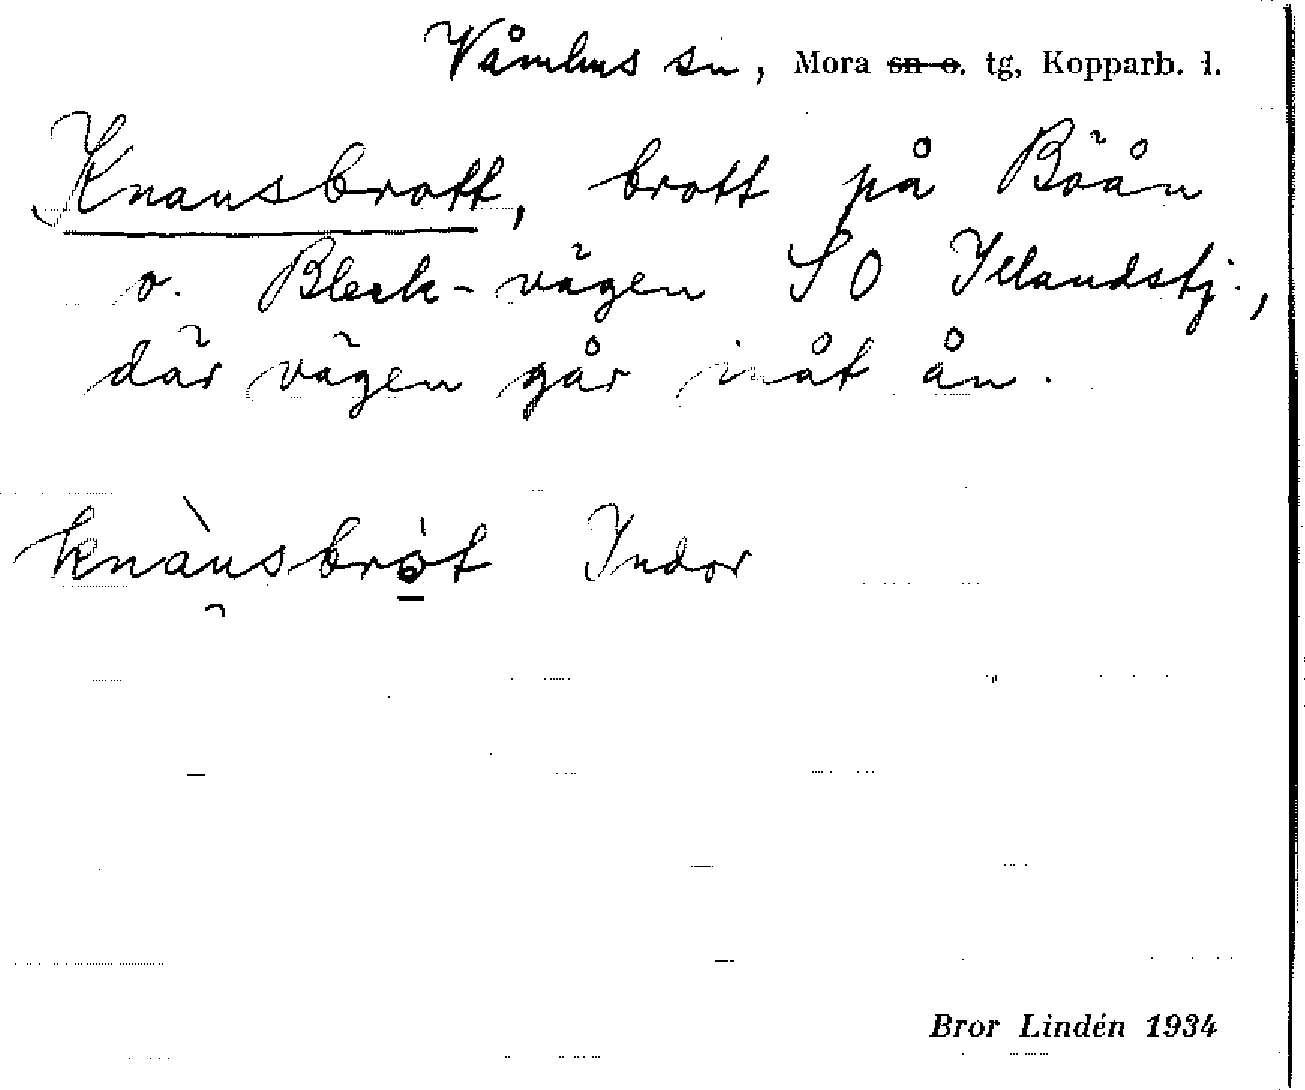 Våmhus sn, Mora sn o. tg, Kopparb. l.
Knausbrott, brott på Böån
o. Bleck-vägen SO Yllandstj.,
där vägen går inåt ån.
knàu̯sbrò̱t Indor
Bror Lindén 1934